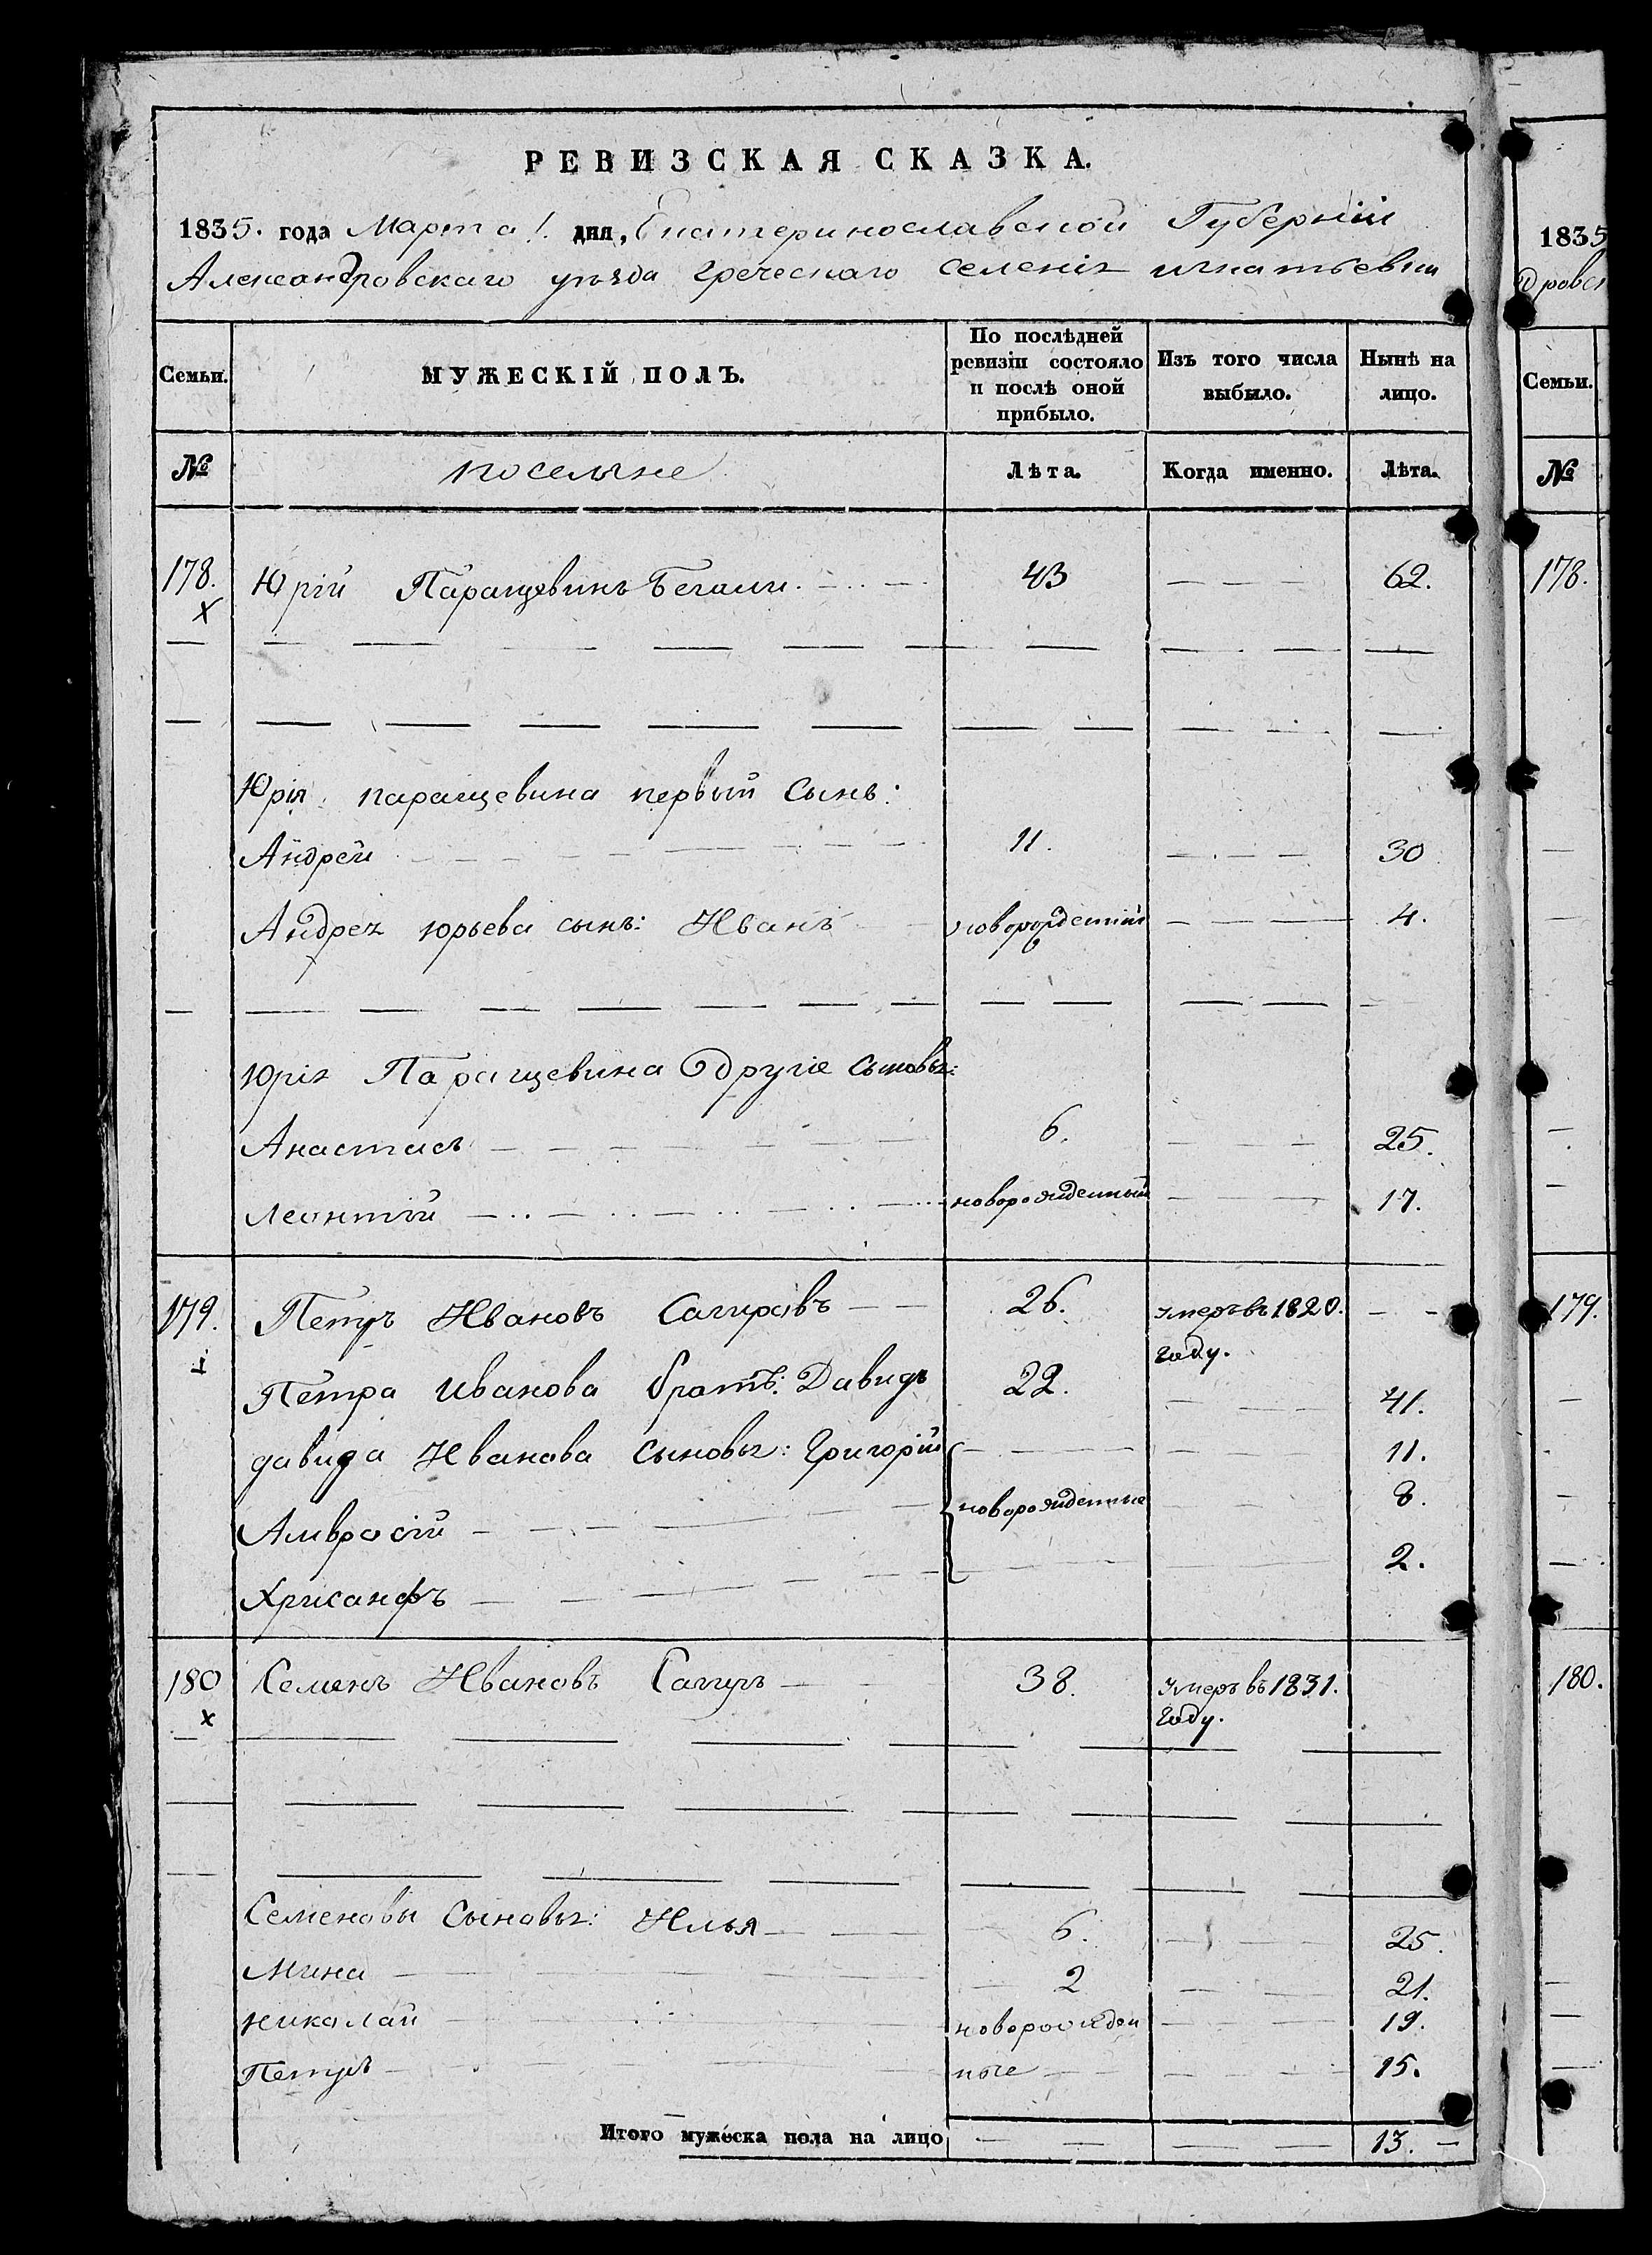 РЕВИЗСКАЯ СКАЗКА.
1835. года Марта 1. дня, Екатеринославской Губерніи
Александровскаго уѣзда Греческаго селенія игнатьевки
Семьи. МУЖЕСКІЙ ПОЛЪ. По послѣдней ревизіи состояло и послѣ оной прибыло. Изъ того числа выбыло. Нынѣ на лицо.
№ поселяне Лѣта. Когда именно. Лѣта.
178. Юрій Паращевинъ 43 62.
х
Юрія паращевина первый Сынъ:
Андрей 11. 30
Андрея юрьева сынъ: Иванъ новорожденній 4.
Юрія Паращевина Другіе сыновья:
Анастасъ 6. 25.
Леонтій новорожденный 17.
179. Петръ Ивановъ 26. умеръ въ 1820. году.
Петра Иванова братъ: Давидъ 22. 41.
давида Иванова Сыновья: Григорій 11.
Амвросій новорожденные 8.
Хрисанфъ 2.
180 Семенъ Ивановъ Сагиръ 38. умеръ въ 1831. году.
х
Семеновы Сыновья: Илья 6. 25.
Мина 2 21.
Николай новорожден 19.
Петръ ные 15.
Итого мужеска пола на лицо 13.
1835
дровск
Семьи.
№
178.
179.
180.